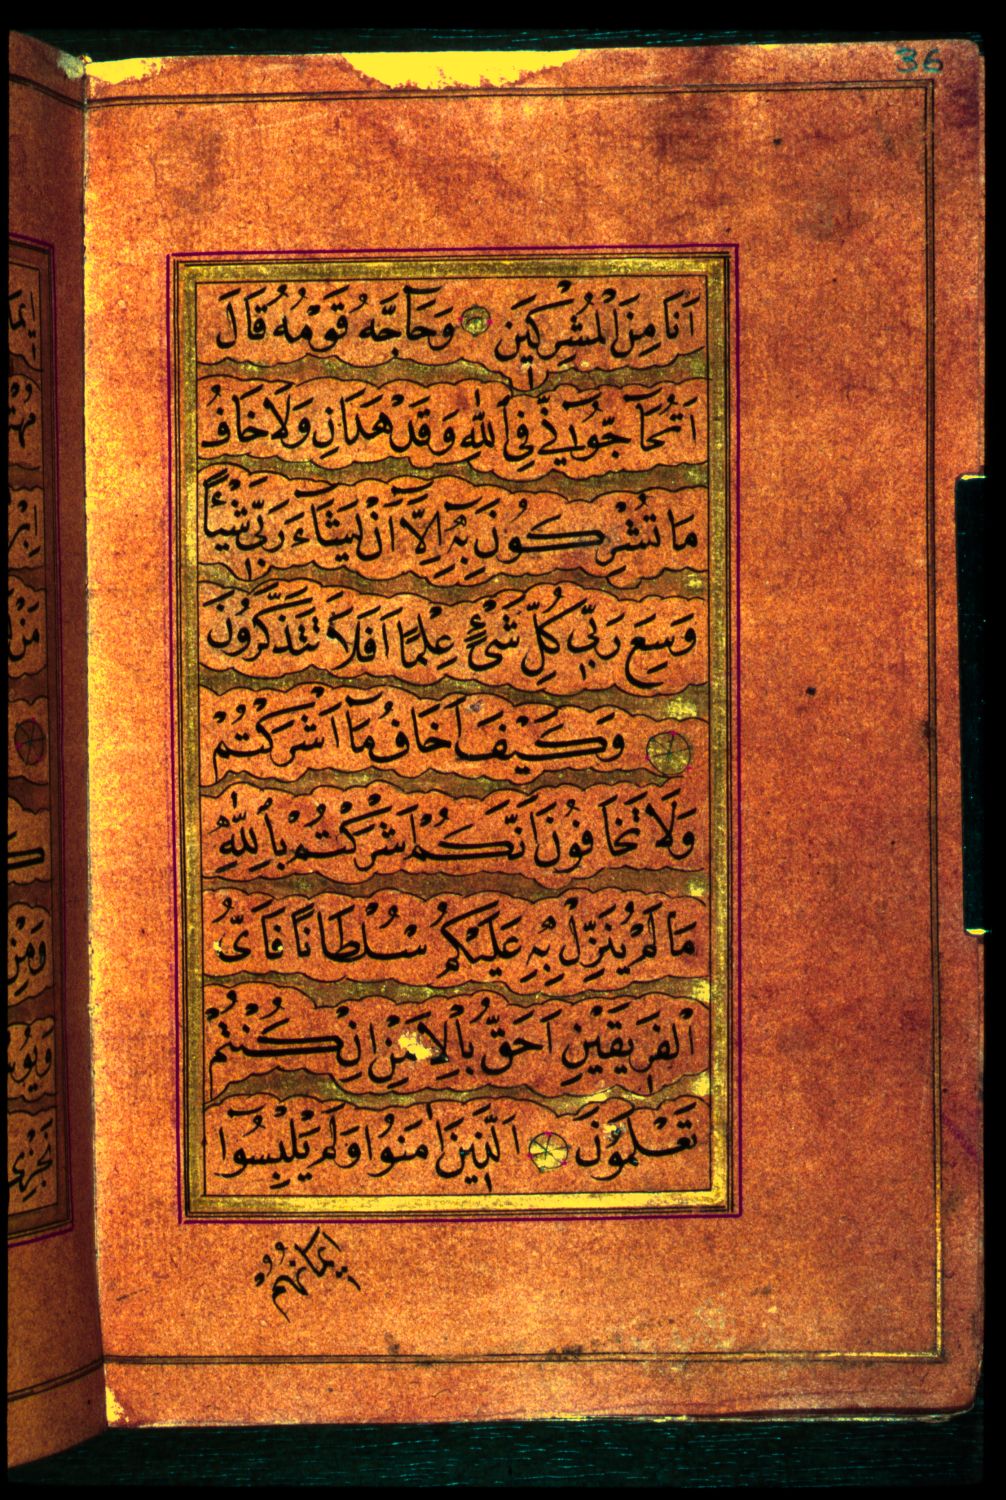 36
اَنَا مِنَ الْمُشْرِكِينَ وَحَاجَّهُ قَوْمُهُ قَالَ
اَتُحَاجُّوانِّي فِي اللهِ وَقَدْ هَدَانِ وَلَا خَافُ
مَا تُشْرِكُونَ بِهِ اِلَّا اَنْ يَشَاءَ رَبِّي شَيْئًا
وَسِعَ رَبِّي كُلَّ شَيْءٍ عِلْمًا اَفَلَا تَتَذَكَّرُونَ
وَكَيْفَ اَخَافُ مَا اَشْرَكْتُمْ
وَلَا تَخَافُونَ اَنَّكُمْ اَشْرَكْتُمْ بِاللهِ
مَا لَمْ يُنَزِّلْ بِهِ عَلَيْكُمْ سُلْطَانًا فَاَيُّ
الْفَرِيقَيْنِ اَحَقُّ بِالْاَمْنِ اِنْ كُنْتُمْ
تَعْلَمُونَ اَلَّذِينَ اٰمَنُوا وَلَمْ يَلْبِسُوا
اِيمَانَهُمْ